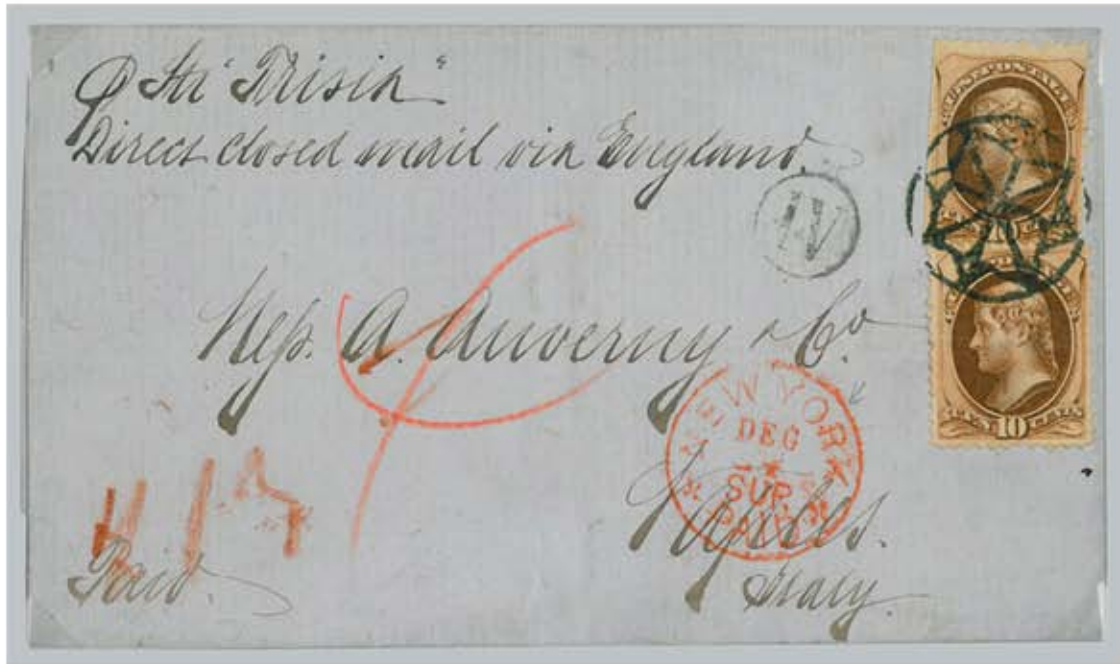 p Str "Frisia"
Direct closed mail via England.
IV
Messrs. A. Auverny & Co.
NEW YORK
DEC
SUP.
PAID
Naples.
Italy.
Paid.
U.S. POSTAGE
10
TEN 10 CENTS